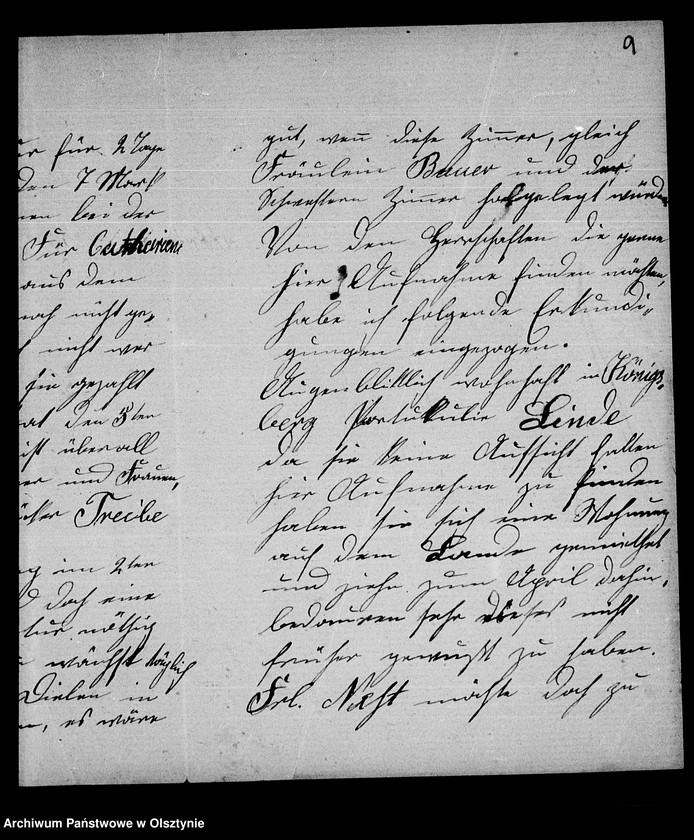 9
er für 2 Tage
den 7 Mark
nen bei der
Für Catharina
aus dem
noch nicht ge-
nicht war
sie gezahlt
at den 3ten
ist überall
er und Frauen,
Treibe
im 2ten
doch eine
tur nöthig
wächst täglich
Dielen in
, es wäre
gut, wenn diese Zimmer, gleich
Fräulein Bauer und der
Schwestern Zimmer gelegt würde
Von den Herrschaften die gerne
hier Aufnahme finden möchten,
habe ich folgende Erkundi-
gungen eingezogen.
Augenblicklich wohnhaft in Königs-
berg Linde
da sie keine Aussicht hatten
hier Aufnahme zu finden
haben sie sich eine Wohnung
auf dem Lande gemiethet
und ziehn zum April dahin,
bedauern sehr dieses nicht
früher gewußt zu haben.
Frl. möchte doch zu
Archiwum Państwowe w Olsztynie